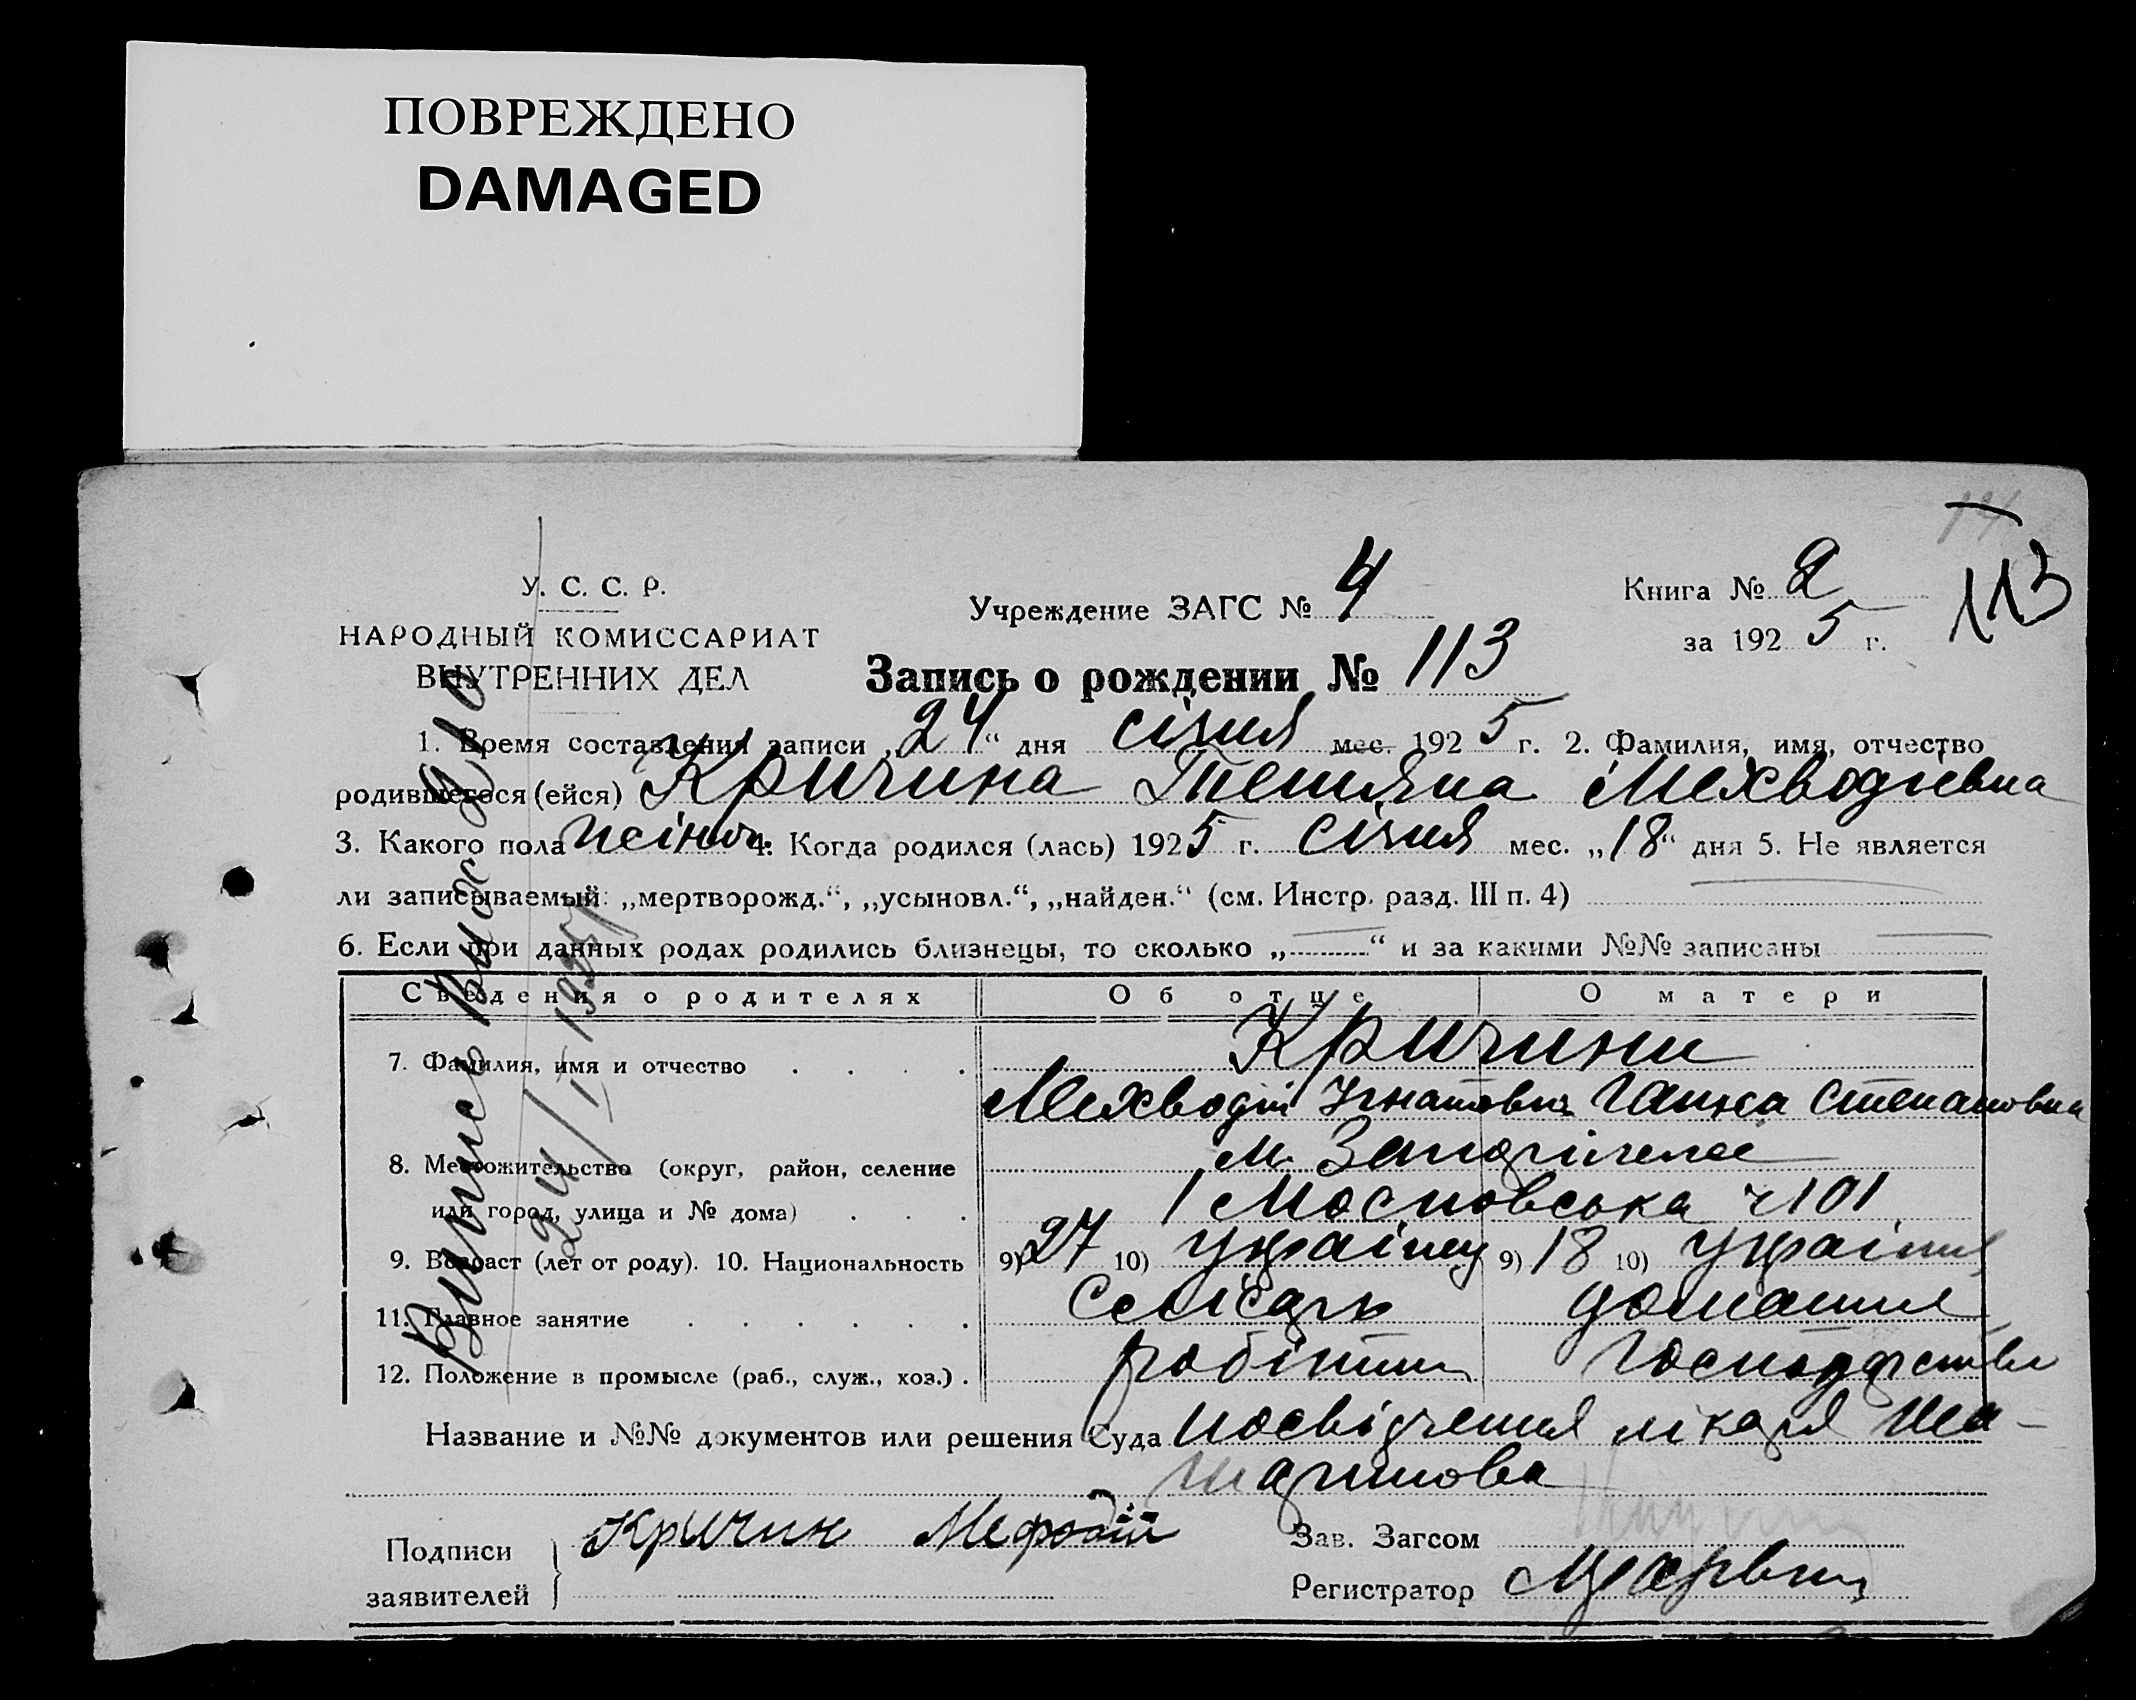 ПОВРЕЖДЕНО
DAMAGED
У. С. С. Р.
НАРОДНЫЙ КОМИССАРИАТ
ВНУТРЕННИХ ДЕЛ
Учреждение ЗАГС № 4
Книга № 2
за 1925 г.
113
Запись о рождении № 113
1. Время составления записи „24“ дня січня мес. 1925 г. 2. Фамилия, имя, отчество
родившегося (ейся) Кричина Тетяна Мехводіевна
3. Какого пола жіноч. 4. Когда родился (лась) 1925 г. січня мес. „18“ дня 5. Не является
ли записываемый: „мертворожд.“, „усыновл.“, „найден.“ (см. Инстр. разд. III п. 4)
6. Если при данных родах родились близнецы, то сколько „ “ и за какими №№ записаны
Сведения о родителях Об отце О матери
7. Фамилия, имя и отчество . . . . Кричини
Мехводій Гнатович Ганна Степановна
8. Местожительство (округ, район, селение м. Запоріжжє
или город, улица и № дома) . . . Московська ч 101
9. Возраст (лет от роду). 10. Национальность 9) 27 10) Украінец 9) 18 10) Украінка
11. Главное занятие . . . . . . Слюсарь домашнє
12. Положение в промысле (раб., служ., хоз.) . робітник господарство
Название и №№ документов или решения Суда посвідчення лікаря
Подписи
заявителей
Кричин Мефодій
Зав. Загсом
Регистратор
Випись видана
24/I 1925